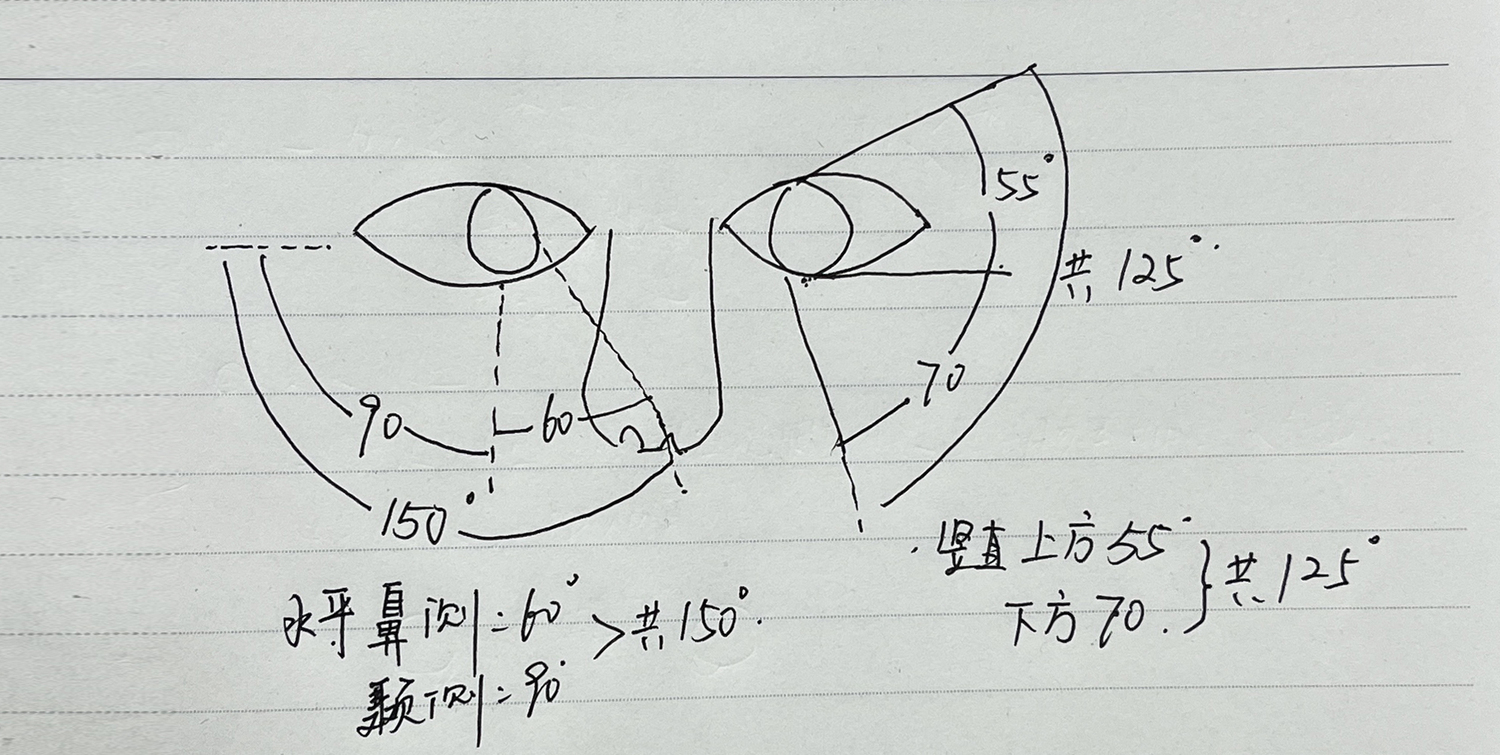 55°
共 125°
70
90
60
150°
竖直上方55°
下方70.
共125°
水平鼻测=60°
共150°.
颞测=90°